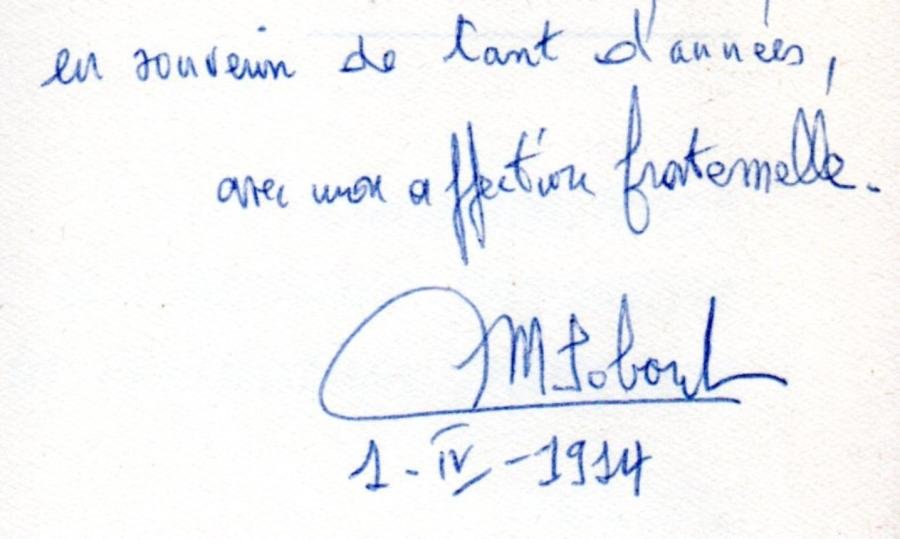 en souvenir de tant d'années,
avec mon affection fraternelle.
1-IV-1914